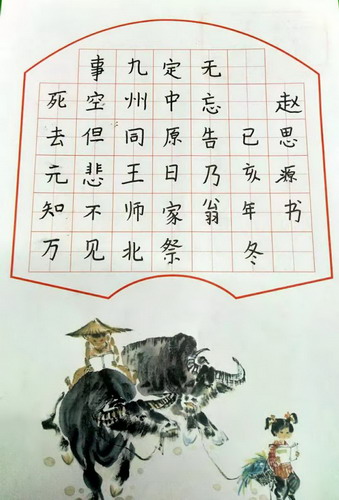 死去元知万
事空但悲不见
九州同王师北
定中原日家祭
无忘告乃翁
己亥年冬
赵思源书